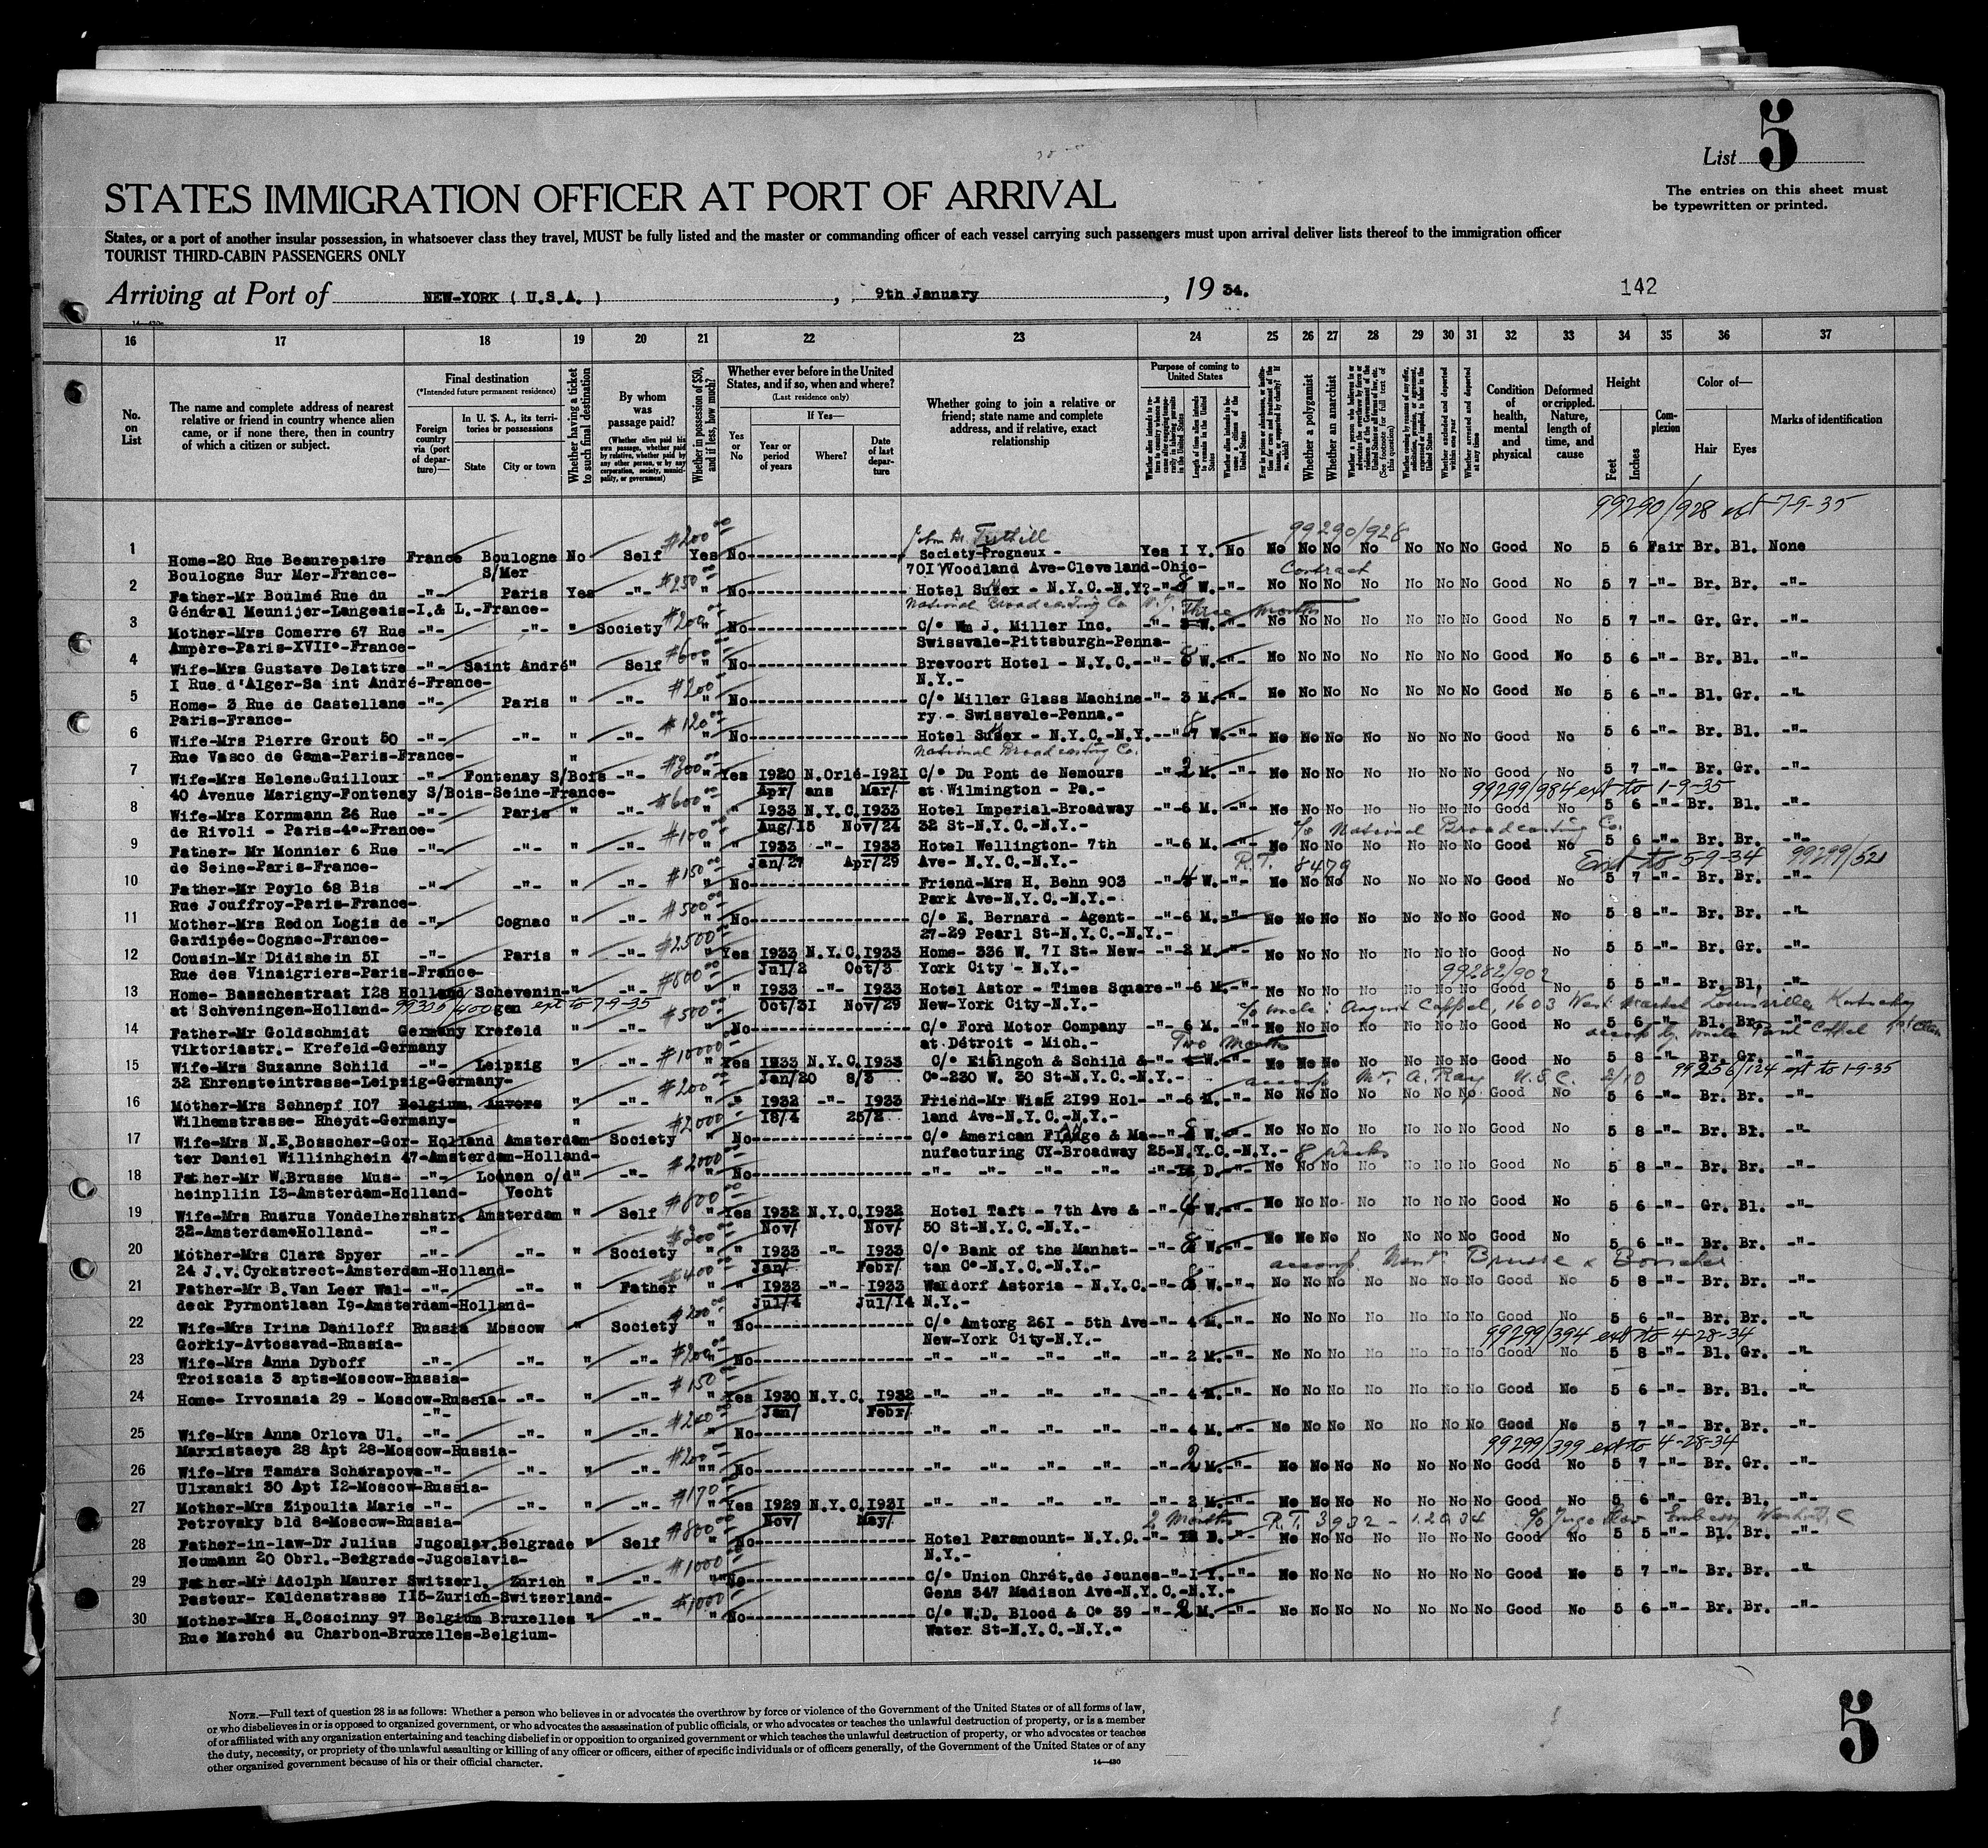 List 5
The entries on this sheet must
be typewritten or printed.
STATES IMMIGRATION OFFICER AT PORT OF ARRIVAL
States, or a port of another insular possession, in whatsoever class they travel, MUST be fully listed and the master or commanding officer of each vessel carrying such passengers must upon arrival deliver lists thereof to the immigration officer
TOURIST THIRD-CABIN PASSENGERS ONLY
Arriving at Port of NEW-YORK ( U.S.A. ) , 9th January , 19 34.
142
16 17 18 19 20 21 22 23 24 25 26 27 28 29 30 31 32 33 34 35 36 37
No. on List
The name and complete address of nearest relative or friend in country whence alien came, or if none there, then in country of which a citizen or subject.
Final destination
(*Intended future permanent residence)
Foreign country via (port of departure)—
In U. S. A., its territories or possessions
State
City or town
Whether having a ticket to such final destination
By whom was passage paid?
(Whether alien paid his own passage, whether paid by relative, whether paid by any other person, or by any corporation, society, municipality, or government)
Whether in possession of $50, and if less, how much?
Whether ever before in the United States, and if so, when and where?
(Last residence only)
If Yes—
Yes or No
Year or period of years
Where?
Date of last departure
Whether going to join a relative or friend; state name and complete address, and if relative, exact relationship
Purpose of coming to United States
Whether a polygamist
Whether an anarchist
Whether excluded and deported within one year
Whether arrested and deported at any time
Condition of health, mental and physical
Deformed or crippled. Nature, length of time, and cause
Height
Feet
Inches
Complexion
Color of—
Hair
Eyes
Marks of identification
99290/928 ext 7-9-35
99290/928
1 Home-20 Rue Beaurepaire France Boulogne No Self $200 Yes No Society-Progneux - Yes I Y. No No No No No No No No Good No 5 6 Fair Br. Bl. None
Boulogne Sur Mer-France- S/Mer 701 Woodland Ave-Cleveland-Ohio- Contract
2 Father-Mr Boulmé Rue du -"- Paris Yes -"- $250 " No Hotel Sussex - N.Y.C.-N.Y. -"- 8 W. -"- No No No No No No No Good No 5 7 -"- Br. Br. -"-
Général Meunijer-Langeais-I.& L.-France- National Broadcasting Co N.Y. Three Months
3 Mother-Mrs Comerre 67 Rue -"- -"- " Society $200 " No C/° Wm J. Miller Inc. -"- W. -"- No No No No No No No Good No 5 7 -"- Gr. Gr. -"-
Ampère-Paris-XVII°-France- Swissvale-Pittsburgh-Penna-
4 Wife-Mrs Gustave Delattre -"- Saint André " Self $600 " No Brevoort Hotel - N.Y.C.- -"- 8 W. -"- No No No No No No No Good No 5 6 -"- Br. Bl. -"-
I Rue d'Alger-Sa int André-France- N.Y.-
5 Home- 3 Rue de Castellane -"- Paris " -"- $200 " No C/° Miller Glass Machine- -"- 3 M. -"- No No No No No No No Good No 5 6 -"- Bl. Gr. -"-
Paris-France- ry.- Swissvale-Penna.-
6 Wife-Mrs Pierre Grout 50 -"- -"- " -"- $120 " No Hotel Sussex - N.Y.C.-N.Y. -"- W. -"- No No No No No No No Good No 5 6 -"- Br. Bl. -"-
Rue Vasco de Gama-Paris-France- National Broadcasting Co.
7 Wife-Mrs Helene Guilloux -"- Fontenay S/Bois " -"- $300 " Yes 1920 N.Orlé- 1921 C/° Du Pont de Nemours -"- 2 M. -"- No No No No No No No Good No 5 7 -"- Br. Gr. -"-
40 Avenue Marigny-Fontenay S/Bois-Seine-France- Apr/ ans Mar/ at Wilmington - Pa.- 99299/984 ext to 1-9-35
8 Wife-Mrs Kornmann 26 Rue -"- Paris " -"- $600 " " 1933 N.Y.C. 1933 Hotel Imperial-Broadway -"- 6 M. -"- No No No No No No No Good No 5 6 -"- Br. Bl. -"-
de Rivoli - Paris-4°-France- Aug/15 Nov/24 32 St-N.Y.C.-N.Y.- c/o National Broadcasting Co.
9 Father- Mr Monnier 6 Rue -"- -"- " -"- $100 " " 1933 -"- 1933 Hotel Wellington- 7th -"- 6 M. -"- No No No No No No No Good No 5 6 -"- Br. Br. -"-
de Seine-Paris-France- Jan/27 Apr/29 Ave- N.Y.C.-N.Y.- R.T. 8479 Ext to 5-9-34 99299/521
10 Father-Mr Poylo 68 Bis -"- -"- " -"- $150 " No Friend-Mrs H. Behn 903 -"- 4 W. -"- No No No No No No No Good No 5 7 -"- Br. Br. -"-
Rue Jouffroy-Paris-France- Park Ave-N.Y.C.-N.Y.-
11 Mother-Mrs Redon Logis de -"- Cognac " -"- $500 " No C/° E. Bernard - Agent- -"- 6 M. -"- No No No No No No No Good No 5 8 -"- Br. Br. -"-
Gardipée-Cognac-France- 27-29 Pearl St-N.Y.C.-N.Y.-
12 Cousin-Mr Didishein 51 -"- Paris " -"- $2500 " Yes 1933 N.Y.C. 1933 Home- 336 W. 71 St- New- -"- 2 M. -"- No No No No No No No Good No 5 5 -"- Br. Gr. -"-
Rue des Vinaigriers-Paris-France- Jul/2 Oct/3 York City - N.Y.- 99282/902
13 Home- Basschestraat 128 Holland Schevenin- " -"- $600 " " 1933 -"- 1933 Hotel Astor - Times Square- -"- 6 M. -"- No No No No No No No Good No 5 5 -"- Br. Bl. -"-
at Schveningen-Holland- gen ext to 7-9-35 Oct/31 Nov/29 New-York City-N.Y.- c/o uncle: August Coppel, 1603 West Market Louisville Kentucky
14 Father-Mr Goldschmidt Germany Krefeld " -"- $500 " No C/° Ford Motor Company -"- 6 M. -"- No No No No No No No Good No 5 6 -"- Bl. Br. -"-
Viktoriastr.- Krefeld-Germany at Détroit - Mich.- Two Months
15 Wife-Mrs Suzanne Schild -"- Leipzig " -"- $10000 " Yes 1933 N.Y.C. 1933 C/° Eisingon & Schild & -"- W. -"- No No No No No No No Good No 5 8 -"- Br. Gr. -"-
32 Ehrensteintrasse-Leipzig-Germany- Jan/20 8/3 C°-230 W. 30 St-N.Y.C.-N.Y.- accomp Mr. A. Ray U.S.C. 2/10 99256/124 ext to 1-9-35
16 Mother-Mrs Schnepf 107 Belgium Anvers " -"- $200 " " 1932 -"- 1933 Friend-Mr Wisk 2199 Hol- -"- 6 M. -"- No No No No No No No Good No 5 6 -"- Br. Br. -"-
Wilhemstrasse- Rheydt-Germany- 18/4 25/2 land Ave-N.Y.C.-N.Y.-
17 Wife-Mrs N.E.Bosscher-Gor- Holland Amsterdam " Society $2000 " No C/° American Flange & Ma- -"- 8 W. -"- No No No No No No No Good No 5 8 -"- Br. Bl. -"-
ter Daniel Willinhghein 47-Amsterdam-Holland- nufacturing CY-Broadway 25-N.Y.C.-N.Y.- 8 Weeks
18 Father-Mr W.Brusse Mus- -"- Loenen o/d " -"- $2000 " No -"- -"- -"- -"- -"- D. -"- No No No No No No No Good No 5 8 -"- Br. Br. -"-
heinpllin 13-Amsterdam-Holland- Vecht
19 Wife-Mrs Ruarus Vondelhershstr. Amsterdam " Self $800 " Yes 1932 N.Y.C. 1932 Hotel Taft - 7th Ave & -"- 4 W. -"- No No No No No No No Good No 5 6 -"- Gr. Bl. -"-
32-Amsterdam-Holland- -"- Nov/ Nov/ 50 St-N.Y.C.-N.Y.-
20 Mother-Mrs Clara Spyer -"- -"- " Society $200 " " 1933 -"- 1933 C/° Bank of the Manhat- -"- 8 W. -"- No No No No No No No Good No 5 6 -"- Br. Br. -"-
24 J.v.Cyckstrect-Amsterdam-Holland- Jan/ Febr/ tan C°-N.Y.C.-N.Y.- accomp. Brusse &
21 Father-Mr B.Van Leer Wal- -"- -"- " Father $400 " " 1933 -"- 1933 Waldorf Astoria - N.Y.C. -"- 8 W. -"- No No No No No No No Good No 5 8 -"- Br. Br. -"-
deck Pyrmontlaan 19-Amsterdam-Holland- Jul/4 Jul/14 N.Y.-
22 Wife-Mrs Irina Daniloff Russia Moscow " Society $200 " No C/° Amtorg 261 - 5th Ave -"- 4 M. -"- No No No No No No No Good No 5 6 -"- Br. Br. -"-
Gorkiy-Avtosavad-Russia- New-York City-N.Y.- 99299/394 ext to 4-28-34
23 Wife-Mrs Anna Dyboff -"- -"- " -"- $200 " No -"- -"- -"- -"- -"- 2 M. -"- No No No No No No No Good No 5 8 -"- Bl. Gr. -"-
Troizcaia 3 apts-Moscow-Russia-
24 Home- Irvoznaia 29 - Moscow-Russia- -"- " -"- $150 " Yes 1930 N.Y.C. 1932 -"- -"- -"- -"- -"- 4 M. -"- No No No No No No No Good No 5 6 -"- Br. Bl. -"-
-"- Jan/ Febr/
25 Wife-Mrs Anna Orlova Ul. -"- -"- " -"- $240 " No -"- -"- -"- -"- -"- 4 M. -"- No No No No No No No Good No 5 7 -"- Br. Br. -"-
Marxistaeya 28 Apt 28-Moscow-Russia- 99299/399 ext to 4-28-34
26 Wife-Mrs Tamara Scharapova -"- -"- " -"- $200 "" No -"- -"- -"- -"- -"- 2 M. -"- No No No No No No No Good No 5 7 -"- Br. Gr. -"-
Ulxanski 30 Apt 12-Moscow-Russia-
27 Mother-Mrs Zipoulia Marie -"- -"- " -"- $170 " Yes 1929 N.Y.C. 1931 -"- -"- -"- -"- -"- 2 M. -"- No No No No No No No Good No 5 6 -"- Gr. Bl. -"-
Petrovsky bld 8-Moscow-Russia- Nov/ May/ 2 Months R.T. 3932 - 12034 c/o Jugo Slav Embassy
28 Father-in-law-Dr Julius Jugoslav. Belgrade " Self $800 " No Hotel Paramount- N.Y.C. -"- D. -"- No No No No No No No Good No 5 5 -"- Bl. Br. -"-
Neumann 20 Obrl.-Belgrade-Jugoslavia- N.Y.-
29 Father-Mr Adolph Maurer Switzerl. Zurich " -"- $1000 "" No C/° Union Chrét.de Jeunes- -"- I Y. -"- No No No No No No No Good No 5 7 -"- Br. Br. -"-
Pasteur- Kaldenstrasse 115-Zurich-Switzerland- Gens 347 Madison Ave-N.Y.C.-N.Y.-
30 Mother-Mrs H.Coscinny 97 Belgium Bruxelles " -"- $1000 " No C/° W.D. Blood & C° 39 -"- 2 M. -"- No No No No No No No Good No 5 6 -"- Br. Br. -"-
Rue Marché au Charbon-Bruxelles-Belgium- Water St-N.Y.C.-N.Y.-
NOTE.—Full text of question 28 is as follows: Whether a person who believes in or advocates the overthrow by force or violence of the Government of the United States or of all forms of law,
or who disbelieves in or is opposed to organized government, or who advocates the assassination of public officials, or who advocates or teaches the unlawful destruction of property, or is a member
of or affiliated with any organization entertaining and teaching disbelief in or opposition to organized government or which teaches the unlawful destruction of property, or who advocates or teaches
the duty, necessity, or propriety of the unlawful assaulting or killing of any officer or officers, either of specific individuals or of officers generally, of the Government of the United States or of any
other organized government because of his or their official character.
14—430
5